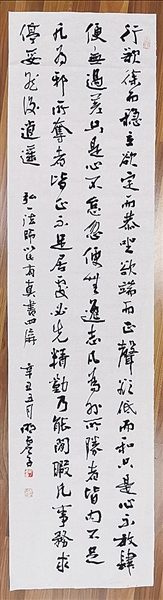 行欲徐而穩立欲定而恭坐欲端而正聲欲低而和只是心不放肆
便無過差只是心不怠忽便無逸志凡為外所勝者皆內不足
凡為邪所奪者皆正不足居處必先精勤乃能閒暇凡事務求
停妥然後逍遥
弘一法師 書四屏 辛丑五月